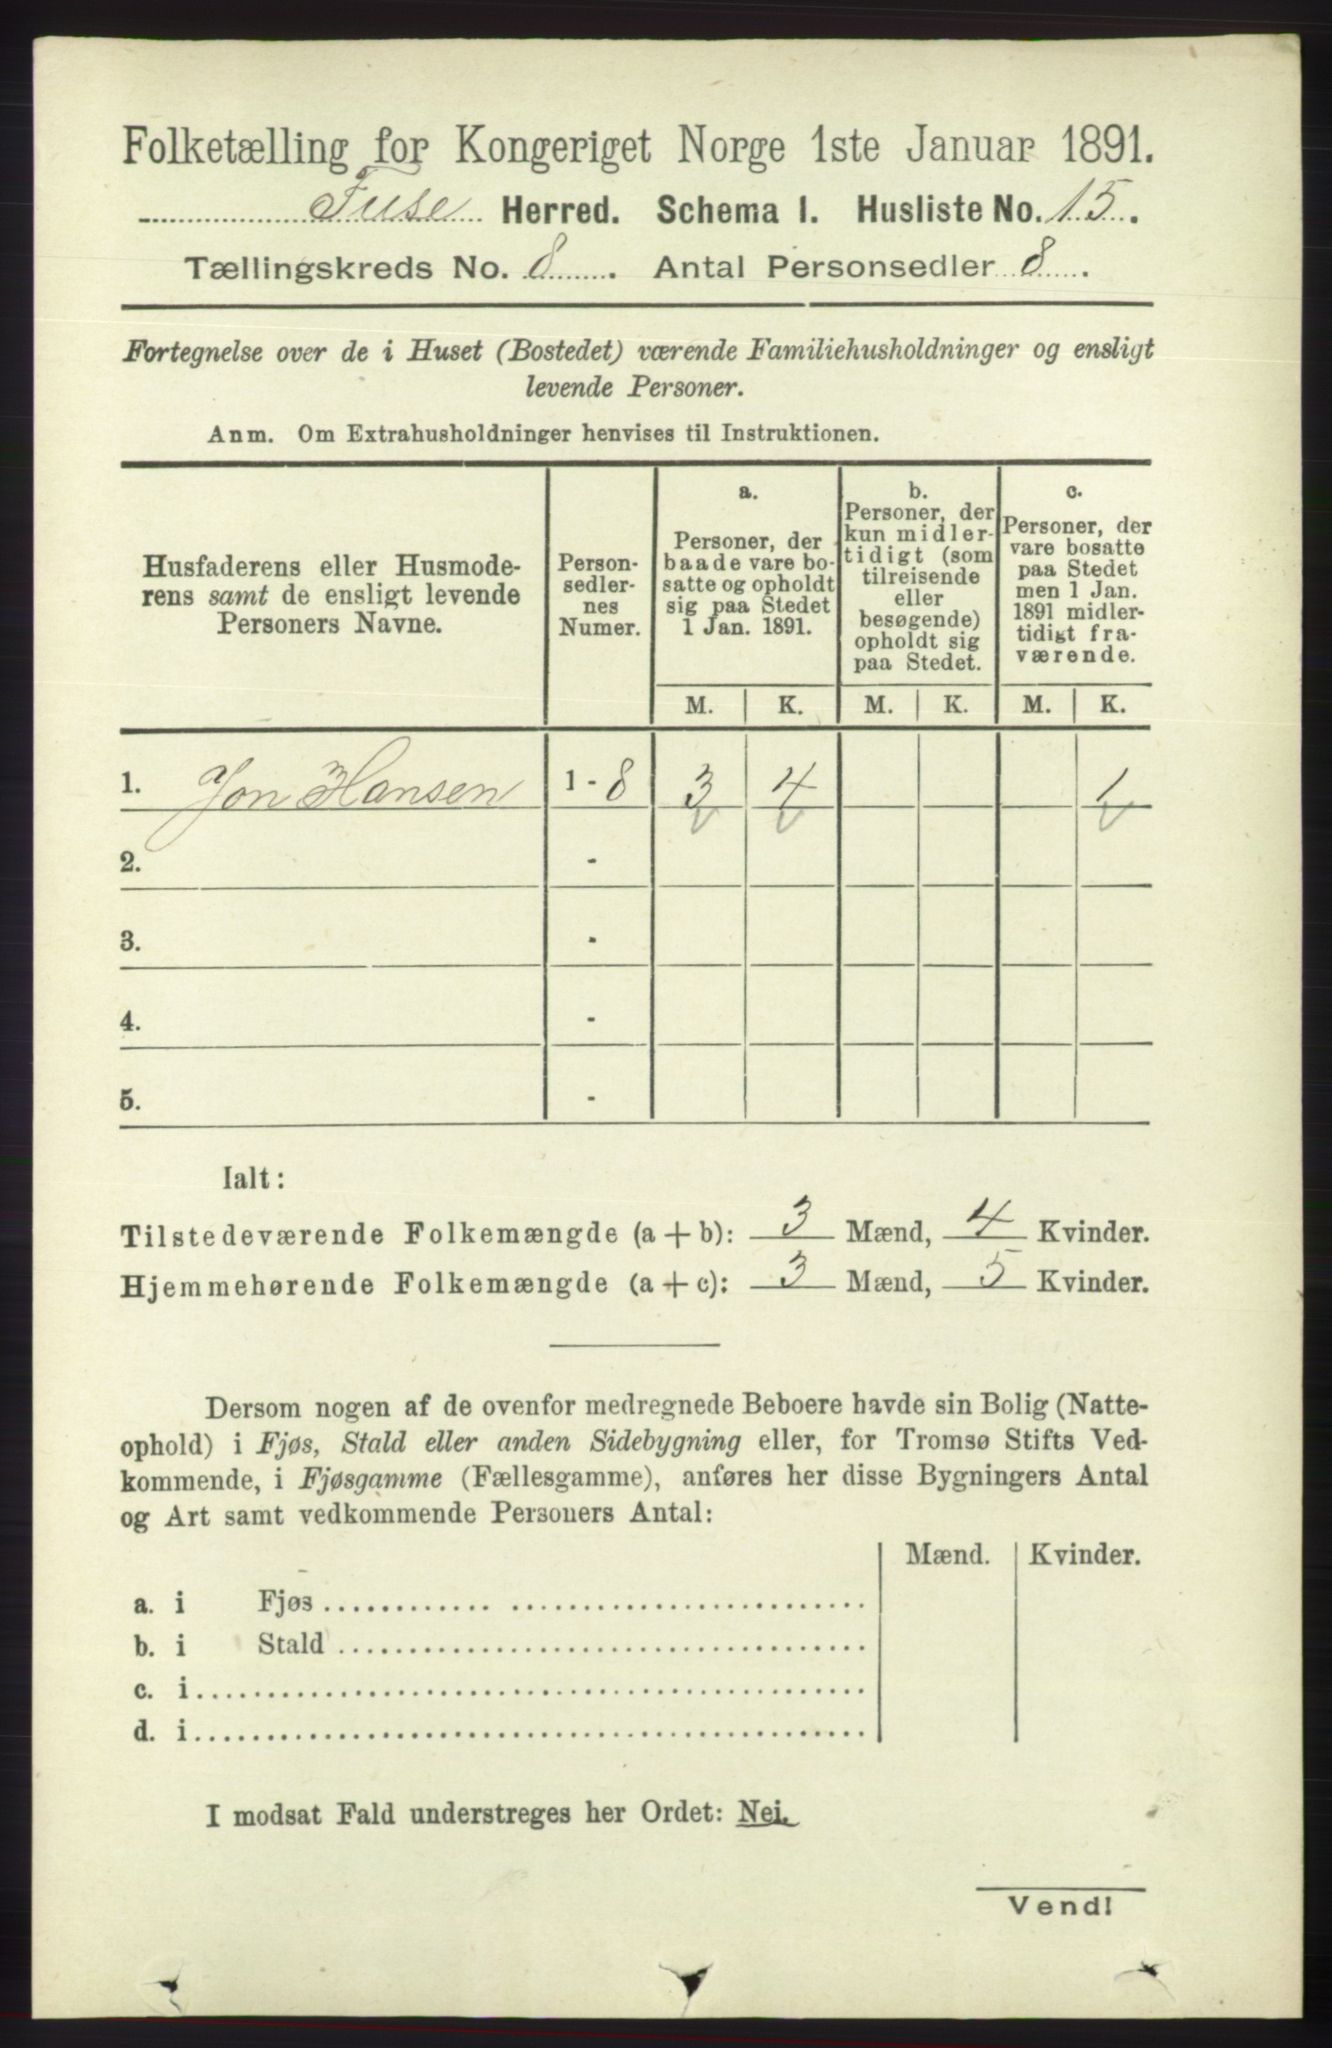 Folketælling for Kongeriget Norge 1ste Januar 1891.
Fuse Herred. Schema I. Husliste No. 15.
Tællingskreds No. 8. Antal Personsedler 8.
Fortegnelse over de i Huset (Bostedet) værende Familiehusholdninger og ensligt
levende Personer.
Anm. Om Extrahusholdninger henvises til Instruktionen.
Husfaderens eller Husmode-
rens samt de ensligt levende
Personers Navne.
Person-
sedler-
nes
Numer.
a.
Personer, der
baade vare bo-
satte og opholdt
sig paa Stedet
1 Jan. 1891.
b.
Personer, der
kun midler-
tidigt (som
tilreisende
eller
besøgende)
opholdt sig
paa Stedet.
c.
Personer, der
vare bosatte
paa Stedet
men 1 Jan.
1891 midler-
tidigt fra-
værende.
M. K. M. K. M. K.
1. Jon Hansen 1 - 8 3 4 1
2. -
3. -
4. -
5. -
Ialt:
Tilstedeværende Folkemængde (a + b): 3 Mænd, 4 Kvinder.
Hjemmehørende Folkemængde (a + c): 3 Mænd, 5 Kvinder.
Dersom nogen af de ovenfor medregnede Beboere havde sin Bolig (Natte-
ophold) i Fjøs, Stald eller anden Sidebygning eller, for Tromsø Stifts Ved-
kommende, i Fjøsgamme (Fællesgamme), anføres her disse Bygningers Antal
og Art samt vedkommende Personers Antal:
Mænd. Kvinder.
a. i Fjøs
b. i Stald
c. i
d. i
I modsat Fald understreges her Ordet: Nei.
Vend!